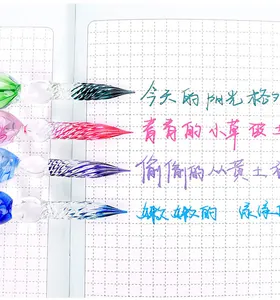 今天的阳光格外
青青的小草做
偷偷的从黄土
嫩嫩的 绿绿